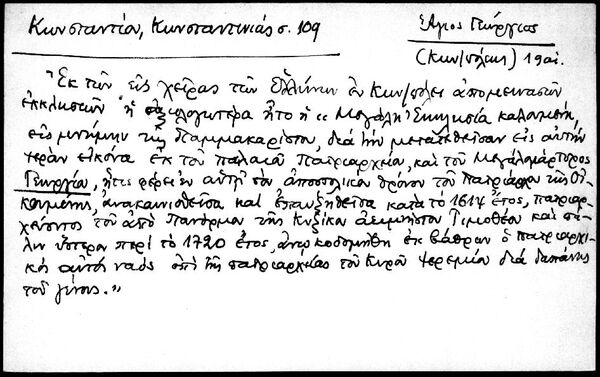 Κωνσταντίου, Κωνσταντινιάς σ. 109
Ἅγιος Γεώργιος
(Κων/πόλεως) 19αἰ.
"Ἐκ τῶν εἰς χεῖρας τῶν Ἑλλήνων ἐν Κων/πόλει ἀπομεινασῶν
ἐκκλησιῶν ἡ ἀξιολογωτέρα ἦτο ἡ "Μεγάλη Ἐκκλησία καλουμένη,
εἰς μνήμην τῆς Παμμακαρίστου, διά τήν μετατεθεῖσαν εἰς αὐτήν
ἱεράν εἰκόνα ἐκ τοῦ παλαιοῦ Πατριαρχείου, καί τοῦ Μεγαλομάρτυρος
Γεωργίου, ἥτις φέρει ἐν αὐτῇ τόν ἀποστολικόν θρόνον τοῦ Πατριάρχου τῆς Οἰ-
κουμένης, ἀνακαινισθεῖσα καί ἐπαυξηθεῖσα κατά τό 1614 ἔτος, πατριαρ-
χεύοντος τοῦ ἀπό Πανόρμου τῆς Κυζίκου ἀειμνήστου Τιμοθέου καί πά-
λιν ὕστερον περί τό 1720 ἔτος, ἀνῳκοδομήθη ἐκ βάθρων ὁ πατριαρχι-
κός αὐτός ναός ἐπί τῆς πατριαρχείας τοῦ Κυροῦ Ἱερεμίου διά δαπάνης
τοῦ γένους."